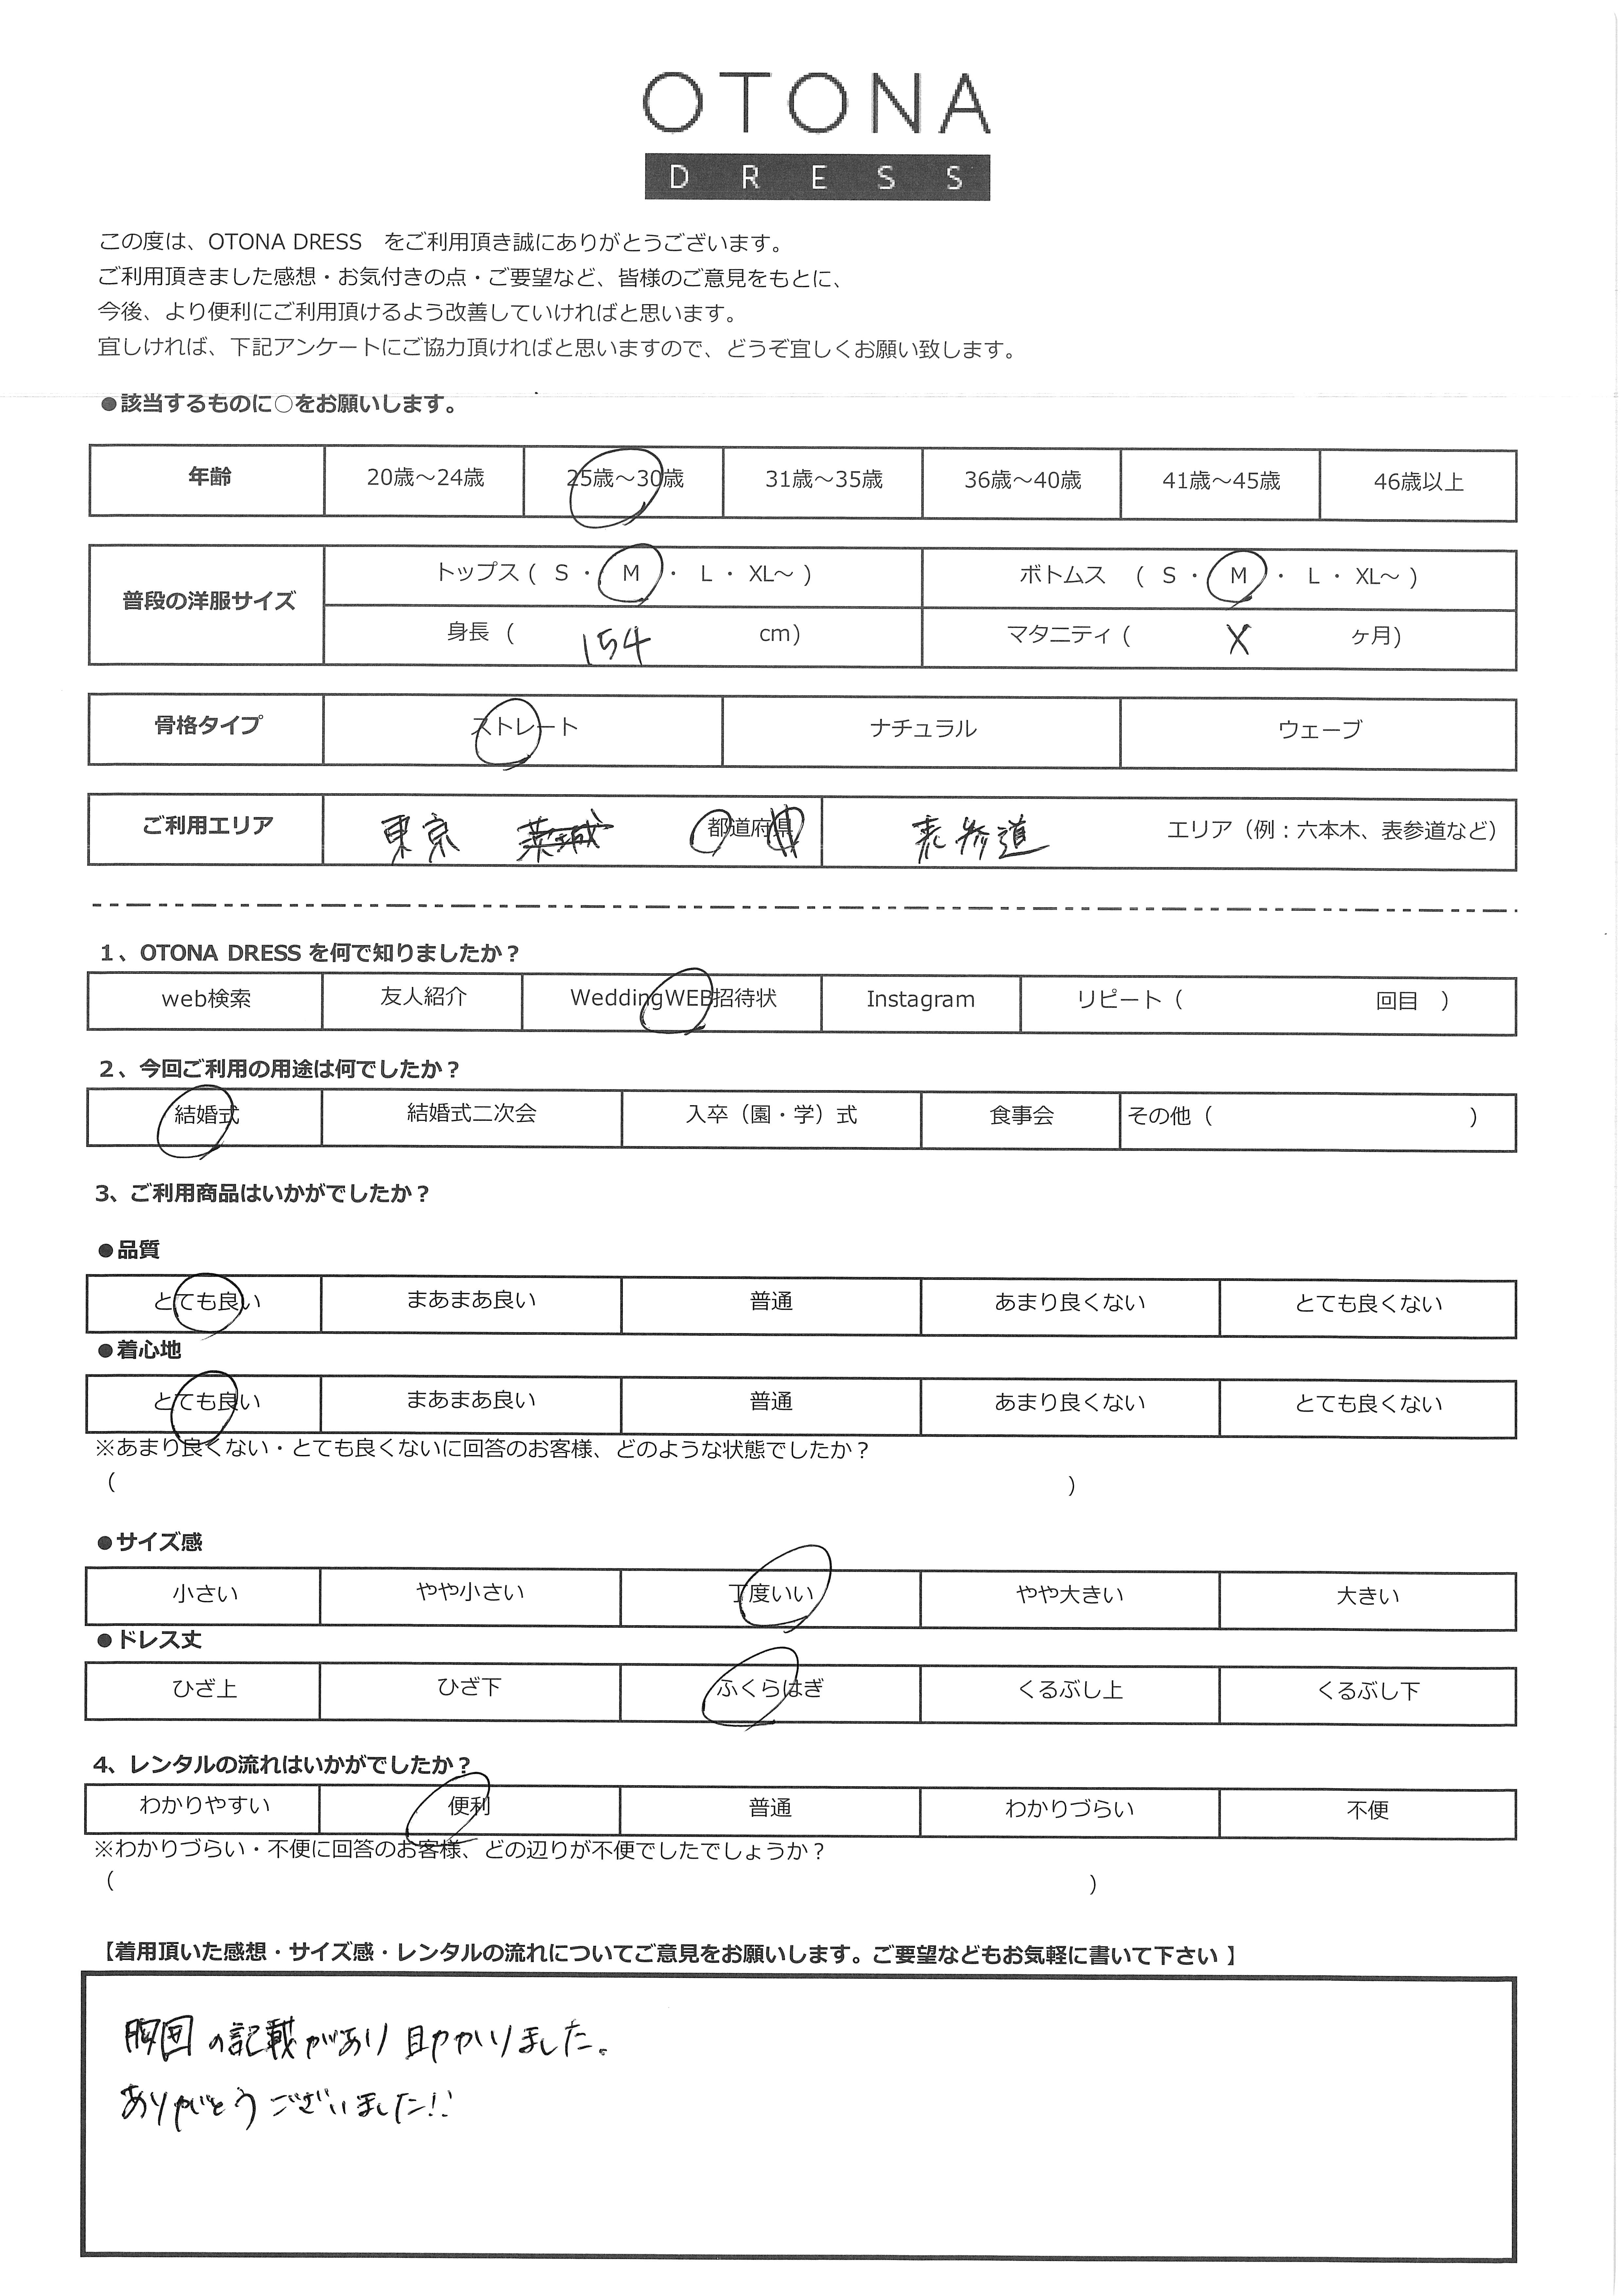 OTONA
DRESS
この度は、OTONA DRESS をご利用頂き誠にありがとうございます。
ご利用頂きました感想・お気付きの点・ご要望など、皆様のご意見をもとに、
今後、より便利にご利用頂けるよう改善していければと思います。
宜しければ、下記アンケートにご協力頂ければと思いますので、どうぞ宜しくお願い致します。
●該当するものに○をお願いします。
年齢 20歳～24歳 25歳～30歳 31歳～35歳 36歳～40歳 41歳～45歳 46歳以上
普段の洋服サイズ トップス ( S ・ M ・ L ・ XL～ ) ボトムス ( S ・ M ・ L ・ XL～ )
身長 ( 154 cm) マタニティ ( X ヶ月)
骨格タイプ ストレート ナチュラル ウェーブ
ご利用エリア 東京 都道府県 表参道 エリア（例：六本木、表参道など）
1、OTONA DRESS を何で知りましたか？
web検索 友人紹介 WeddingWEB招待状 Instagram リピート（ 回目 ）
2、今回ご利用の用途は何でしたか？
結婚式 結婚式二次会 入卒（園・学）式 食事会 その他（ ）
3、ご利用商品はいかがでしたか？
●品質
とても良い まあまあ良い 普通 あまり良くない とても良くない
●着心地
とても良い まあまあ良い 普通 あまり良くない とても良くない
※あまり良くない・とても良くないに回答のお客様、どのような状態でしたか？
（ ）
●サイズ感
小さい やや小さい 丁度いい やや大きい 大きい
●ドレス丈
ひざ上 ひざ下 ふくらはぎ くるぶし上 くるぶし下
4、レンタルの流れはいかがでしたか？
わかりやすい 便利 普通 わかりづらい 不便
※わかりづらい・不便に回答のお客様、どの辺りが不便でしたでしょうか？
（ ）
【着用頂いた感想・サイズ感・レンタルの流れについてご意見をお願いします。ご要望などもお気軽に書いて下さい 】
胸囲の記載があり助かりました。
ありがとうございました!!